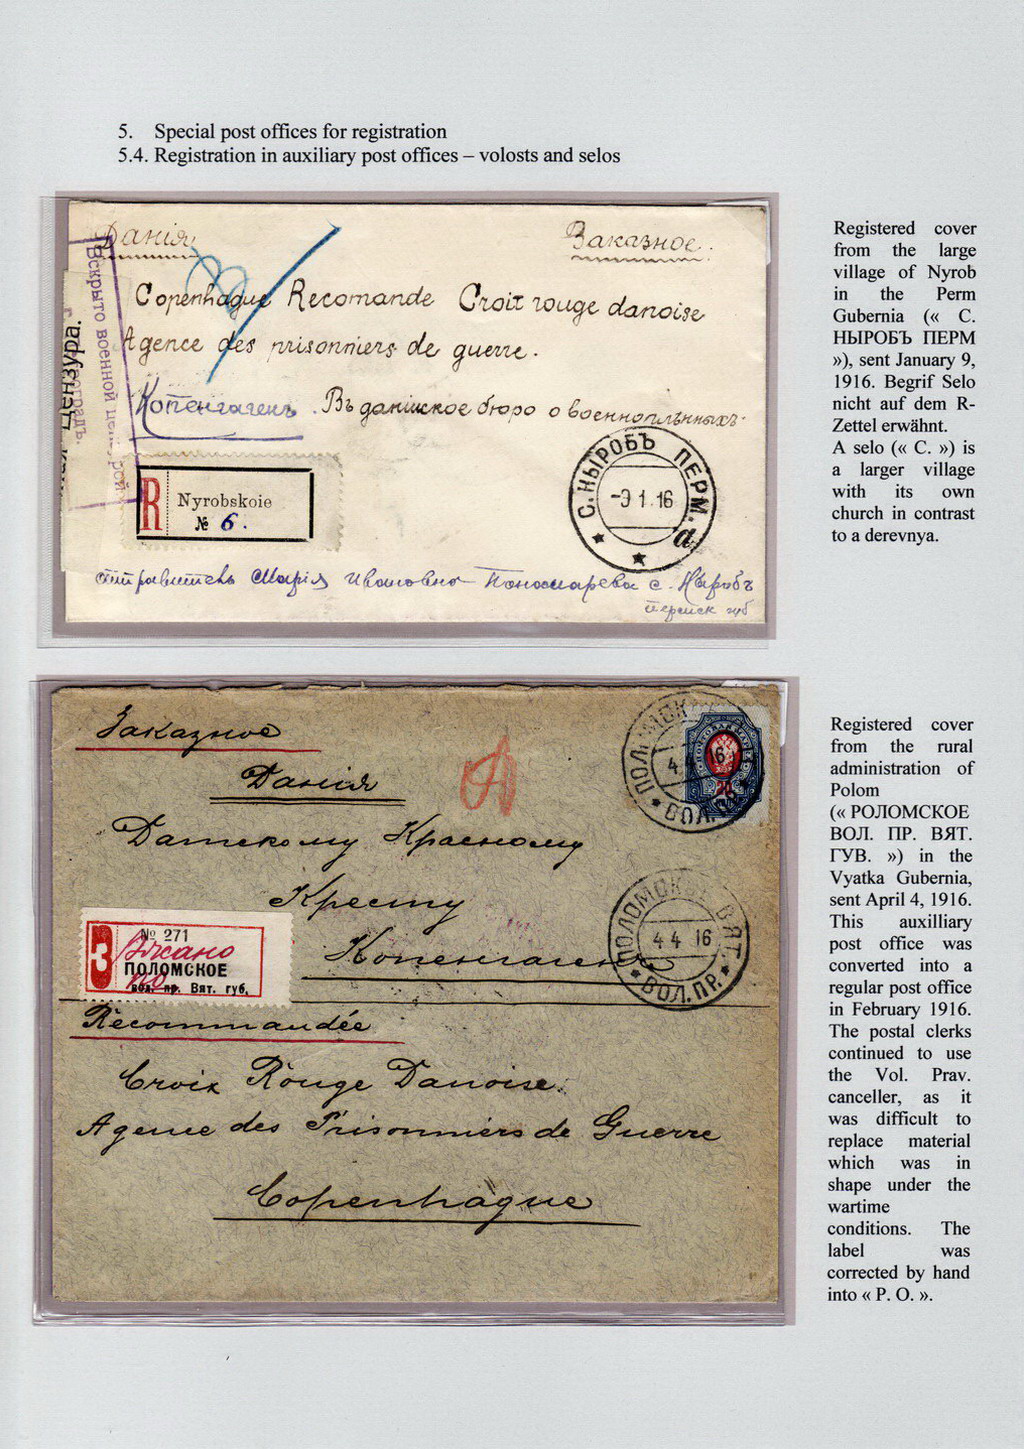 5. Special post offices for registration
5.4. Registration in auxiliary post offices – volosts and selos
Данія
Заказное.
Copenhague Recomande Croix rouge danoise
Agence des prisonniers de guerre.
Копенгагенъ. Въ данішское бюро о военноплѣнныхъ.
Вскрыто военной цензурой
Цензура.
R
Nyrobskoie
№ 6.
С. НЫРОБЪ ПЕРМ.
-9 1.16
d
отправитель Марія Ивановно Пономарева с. Ныробъ
Пермск губ
Registered cover
from the large
village of Nyrob
in the Perm
Gubernia (« С.
НЫРОБЪ ПЕРМ
»), sent January 9,
1916. Begrif Selo
nicht auf dem R-
Zettel erwähnt.
A selo (« C. ») is
a larger village
with its own
church in contrast
to a derevnya.
Заказное
Данія
Датскому Красному
Кресту
Копенгагенъ
З
№ 271
ПОЛОМСКОЕ
вол. пр. Вят. губ.
ПОЛОМСК
4 4 16
ВОЛ. ПР.
ПОЛОМСК ВЯТ.
4 4 16
ВОЛ. ПР.
Recommandée
Croix Rouge Danoise.
Agence des Prisonniers de Guerre
Copenhague
Registered cover
from the rural
administration of
Polom
(« POЛОМСКОЕ
ВОЛ. ПР. ВЯТ.
ГУВ. ») in the
Vyatka Gubernia,
sent April 4, 1916.
This auxilliary
post office was
converted into a
regular post office
in February 1916.
The postal clerks
continued to use
the Vol. Prav.
canceller, as it
was difficult to
replace material
which was in
shape under the
wartime
conditions. The
label was
corrected by hand
into « P. O. ».